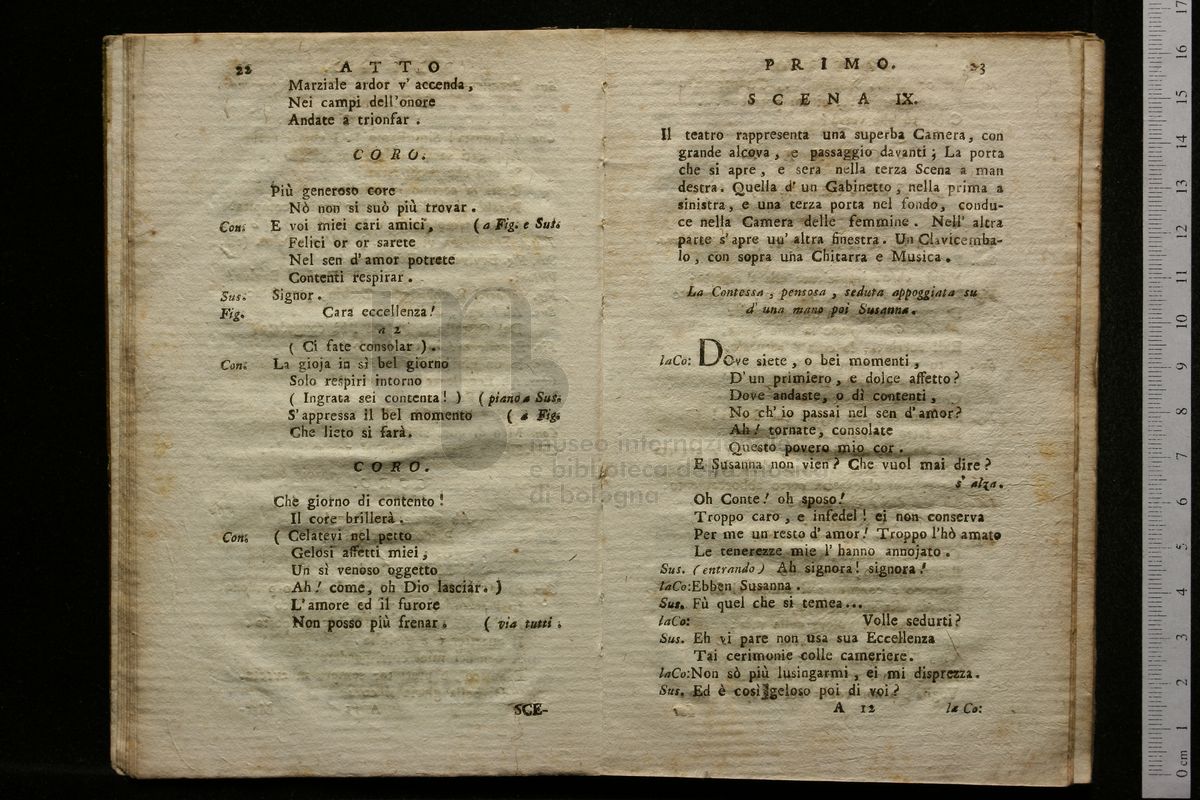 22 ATTO
Marziale ardor v' accenda,
Nei campi dell'onore
Andate a trionfar .
CORO.
Più generoso core
Nò non si suò più trovar .
Con. E voi miei cari amici, ( a Fig. e Sus.
Felici or or sarete
Nel sen d'amor potrete
Contenti respirar .
Sus. Signor .
Fig. Cara eccellenza!
a 2
( Ci fate consolar ) .
Con. La gioja in sì bel giorno
Solo respiri intorno
( Ingrata sei contenta! ) ( piano a Sus.
S'appressa il bel momento ( a Fig.
Che lieto si farà.
CORO.
Chè giorno di contento !
Il core brillerà .
Con. ( Celatevi nel petto
Gelosi affetti miei ,
Un sì venoso oggetto
Ah! come, oh Dio lasciar. )
L'amore ed il furore
Non posso più frenar . ( via tutti .
SCE-
PRIMO. 23
SCENA IX.
Il teatro rappresenta una superba Camera, con
grande alcova , e passaggio davanti ; La porta
che si apre, e sera nella terza Scena a man
destra. Quella d' un Gabinetto , nella prima a
sinistra, e una terza porta nel fondo, condu-
ce nella Camera delle femmine . Nell' altra
parte s'apre uu' altra finestra. Un Clavicemba-
lo , con sopra una Chitarra e Musica .
La Contessa , pensosa , seduta appoggiata su
d' una mano poi Susanna.
laCo: Dove siete , o bei momenti ,
D'un primiero , e dolce affetto?
Dove andaste, o dì contenti ,
No ch' io passai nel sen d'amor?
Ah! tornate, consolate
Questo povero mio cor .
E Susanna non vien? Che vuol mai dire?
s' alza.
Oh Conte! oh sposo!
Troppo caro , e infedel! ei non conserva
Per me un resto d' amor! Troppo l'hò amato
Le tenerezze mie l' hanno annojato .
Sus. (entrando) Ah signora! signora!
laCo:Ebben Susanna .
Sus. Fù quel che si temea...
laCo: Volle sedurti?
Sus. Eh vi pare non usa sua Eccellenza
Tai cerimonie colle cameriere.
laCo:Non sò più lusingarmi , ei mi disprezza.
Sus. Ed è così geloso poi di voi?
A 12 la Co:
museo internazionale
e biblioteca della musica
di bologna